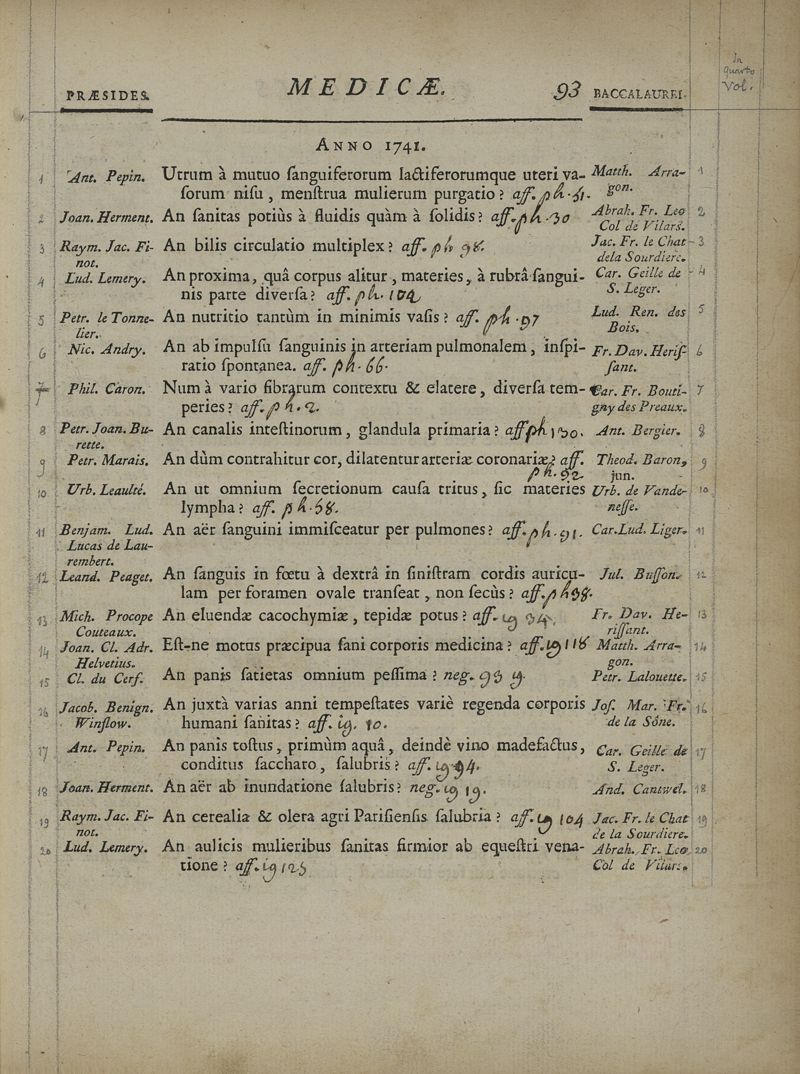 In
quarto
vol.
PRÆSIDES. MEDICÆ. 93 BACCALAUREI.
ANNO 1741.
1 Ant. Pepin. Utrum à mutuo ſanguiferorum lactiferorumque uteri va- Matth. Arra- 1
ſorum niſu, menſtrua mulierum purgatio? aff. ph. 51. gon.
2 Joan. Herment. An ſanitas potiùs à fluidis quàm à ſolidis? aff. ph. 30 Abrah. Fr. Leo 2
Col de Vilars.
3 Raym. Jac. Fi- An bilis circulatio multiplex? aff. ph 98. Jac. Fr. le Chat 3
not. dela Sourdiere.
4 Lud. Lemery. An proxima, quâ corpus alitur, materies, à rubrâ ſangui- Car. Geille de 4
nis parte diverſa? aff. ph. 104 S. Leger.
5 Petr. le Tonne- An nutritio tantùm in minimis vaſis? aff. ph. 97 Lud. Ren. des 5
lier. Bois.
6 Nic. Andry. An ab impulſu ſanguinis in arteriam pulmonalem, inſpi- Fr. Dav. Heriſ- 6
ratio ſpontanea. aff. ph. 66. ſant.
7 Phil. Caron. Num à vario fibrarum contextu & elatere, diverſa tem- Car. Fr. Bouti- 7
peries? aff. ph. 2. gny des Preaux.
8 Petr. Joan. Bu- An canalis inteſtinorum, glandula primaria? aff. ph 130. Ant. Bergier. 8
rette.
9 Petr. Marais. An dùm contrahitur cor, dilatentur arteriæ coronariæ? aff. Theod. Baron, 9
ph. 92. jun.
10 Urb. Leaulté. An ut omnium ſecretionum cauſa tritus, ſic materies Urb. de Vande- 10
lympha? aff. ph. 58. neſſe.
11 Benjam. Lud. An aër ſanguini immiſceatur per pulmones? aff. ph. 91. Car. Lud. Liger. 11
Lucas de Lau-
rembert.
12 Leand. Peaget. An ſanguis in fœtu à dextrâ in ſiniſtram cordis auricu- Jul. Buſſon. 12
lam per foramen ovale tranſeat, non ſecùs? aff. ph
13 Mich. Procope An eluendæ cacochymiæ, tepidæ potus? aff. Fr. Dav. He- 13
Couteaux. riſſant.
14 Joan. Cl. Adr. Eſt-ne motus præcipua ſani corporis medicina? aff. 118 Matth. Arra- 14
Helvetius. gon.
15 Cl. du Cerf. An panis ſatietas omnium peſſima? neg. Petr. Lalouette. 15
16 Jacob. Benign. An juxtà varias anni tempeſtates variè regenda corporis Joſ. Mar. Fr. 16
Winſlow. humani ſanitas? aff. 10. de la Sône.
17 Ant. Pepin. An panis toſtus, primùm aquâ, deindè vino madefactus, Car. Geille de 17
conditus ſaccharo, ſalubris? aff. S. Leger.
18 Joan. Herment. An aër ab inundatione ſalubris? neg. 19. And. Cantwel. 18
19 Raym. Jac. Fi- An cerealia & olera agri Pariſienſis ſalubria? aff. 104 Jac. Fr. le Chat 19
not. de la Sourdiere.
20 Lud. Lemery. An aulicis mulieribus ſanitas firmior ab equeſtri vena- Abrah. Fr. Leo 20
tione? aff. 125 Col de Vilars.